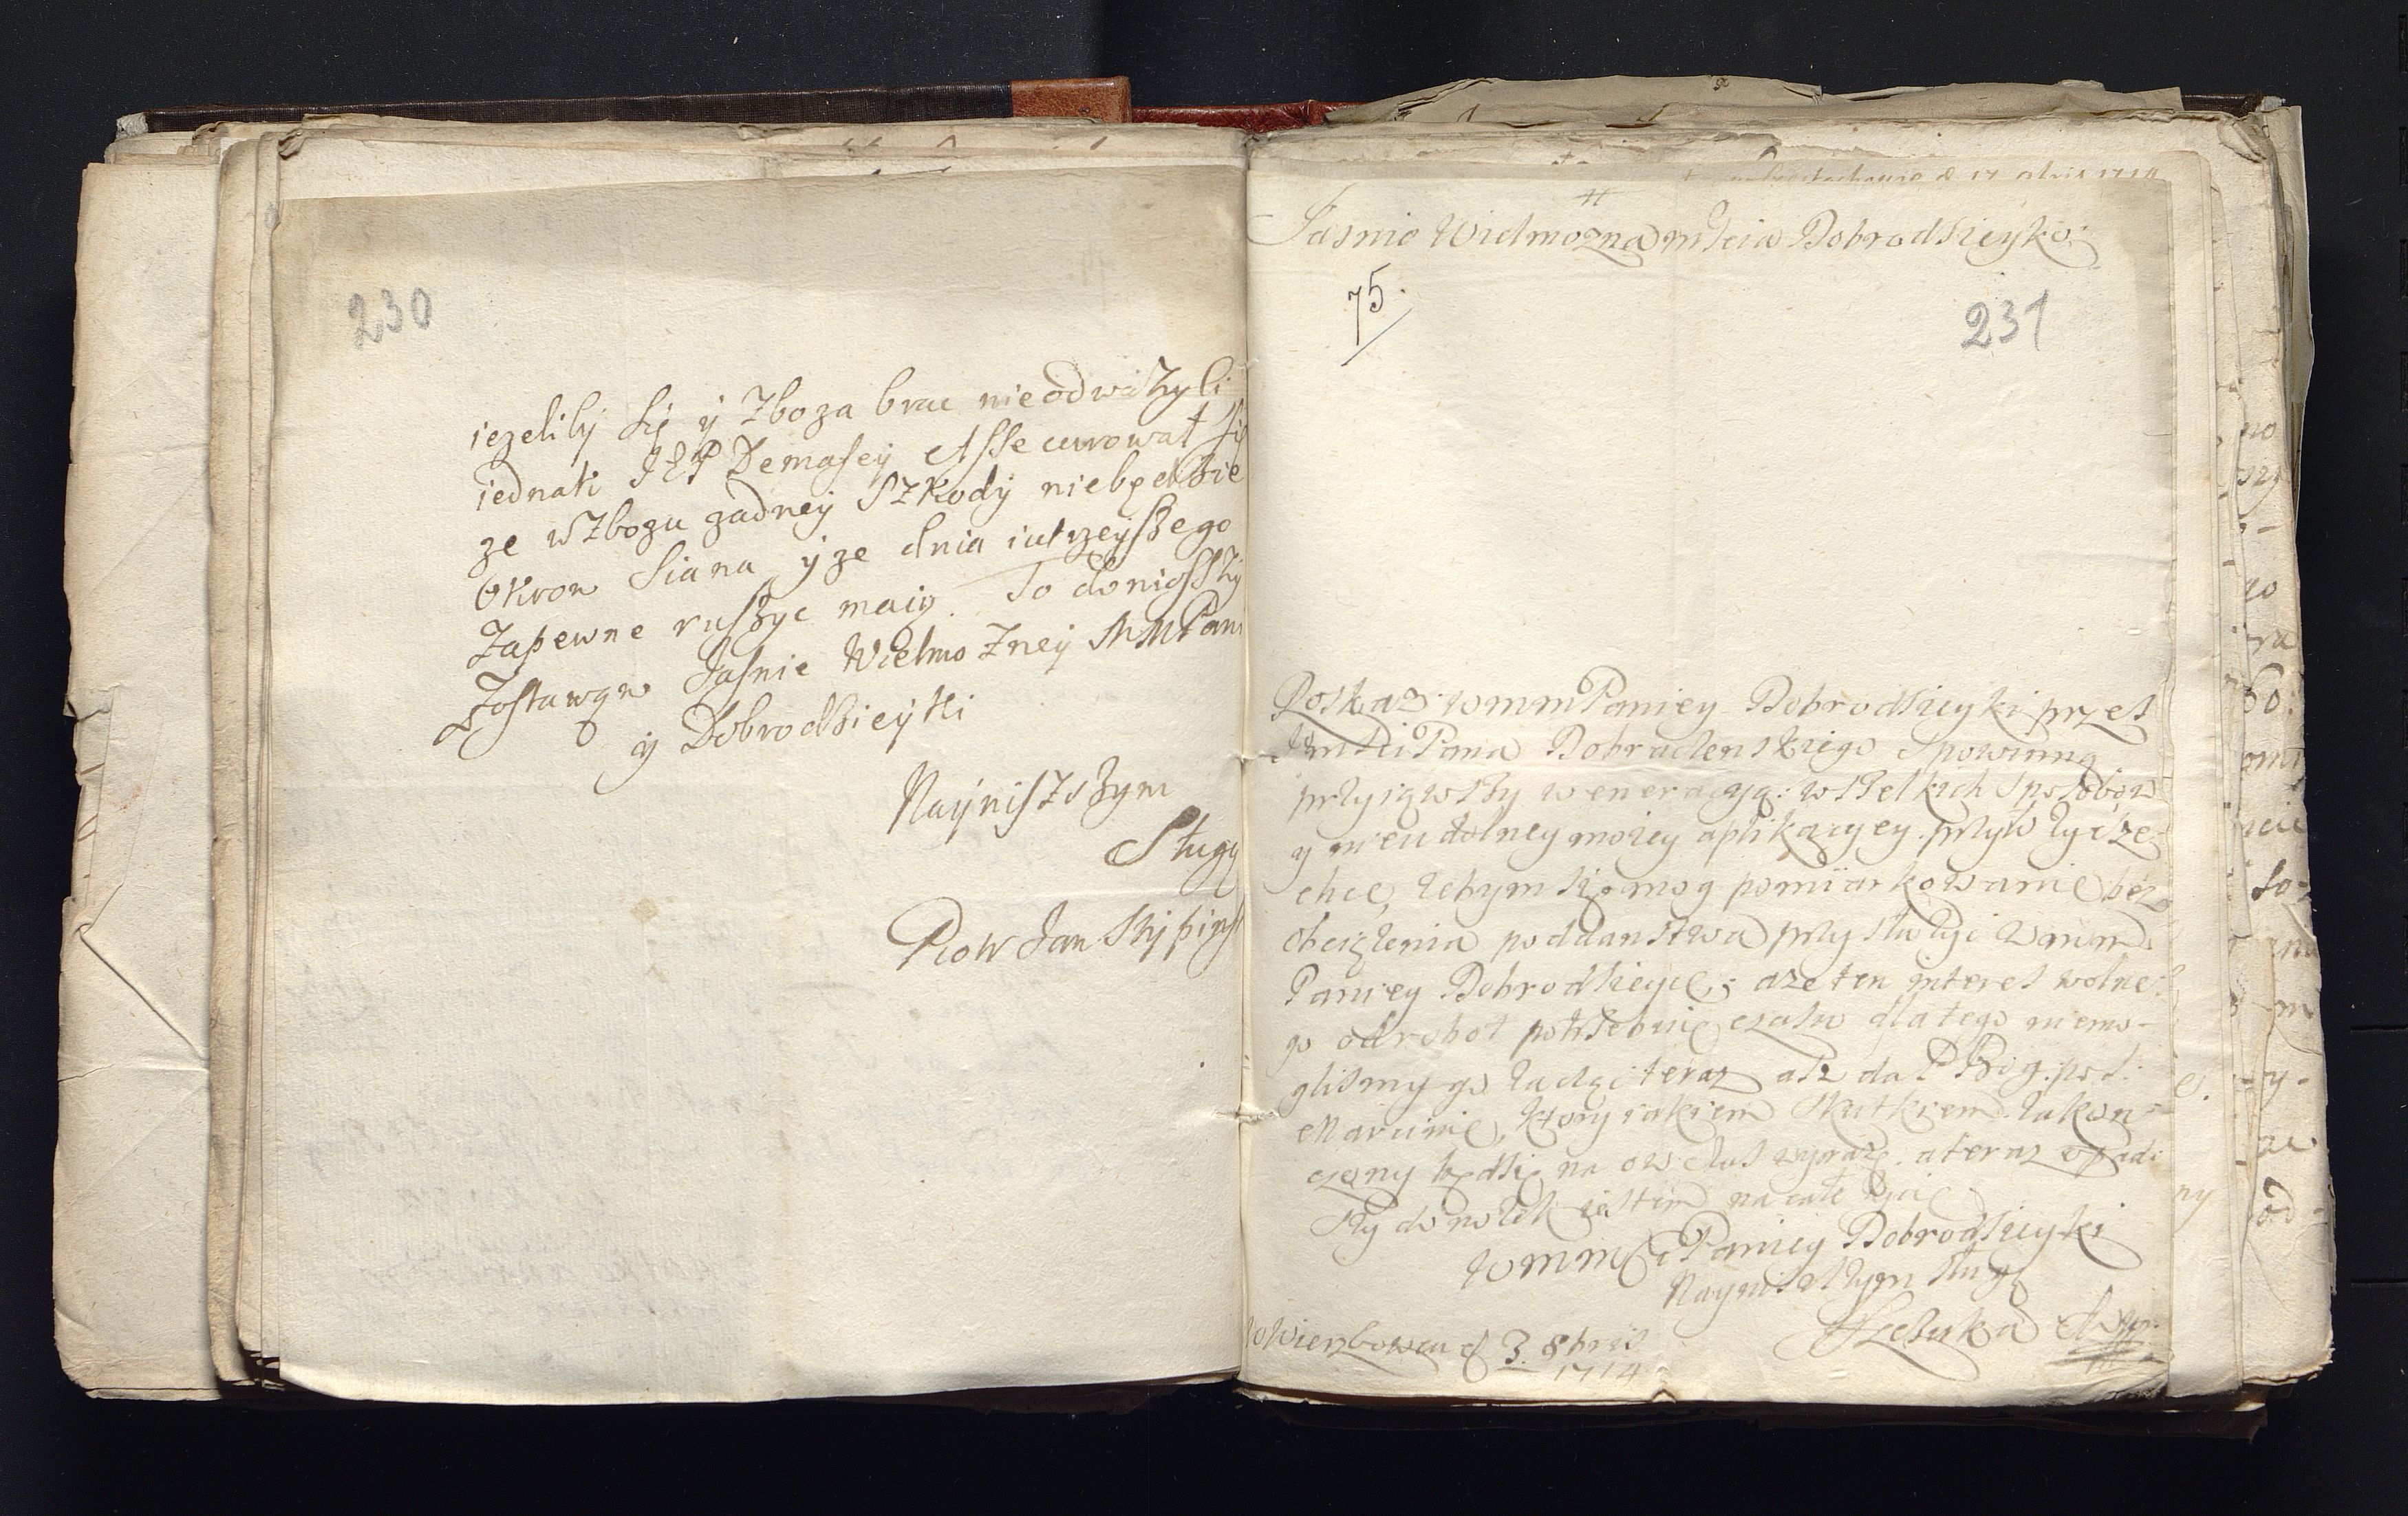 230
iezeliby się y zboza brac nieodwazyli
iednak JEP Demasey Assecurował się
ze w zbozu zadney szkody niebędzie
okrom siana y ze dnia iutrzeyszego
zapewne ruszyc maią. To doniosszy
zostawam Jasnie Wielmozney MMPani
y Dobrodzieyki
Nayniszszym
Sługą
Piotr Jan
Jasnie Wielmozna mścia Dobrodzieyko
75
231
Roskaz wmmPaniey Dobrodzieyki przez
JmsciPana spowinną
przyiąwszy weneracyą: wszelkich sposobow
y nieudolney moiey aplikacyey przyłozyc ze
chcę, zebym się mogł pomiarkowanie bez
obciązenia poddanstwa przysłuzyc Wmm
Paniey Dobrodzieyce; aze ten interes wolne
go od robot potrzebuie czasu dlatego niemo-
glismy go zacząc teraz asz da P Bog. po S.
Marcinie, ktory iakiem skutkiem zakon-
czony będzie na ow czas wyrazę. a teraz upad
szy do nozek iestem na całe zycie
wmmsci Paniey Dobrodzieyki
Nayniszszym sługą
Wierzbowcu d 3. 8bris
1714